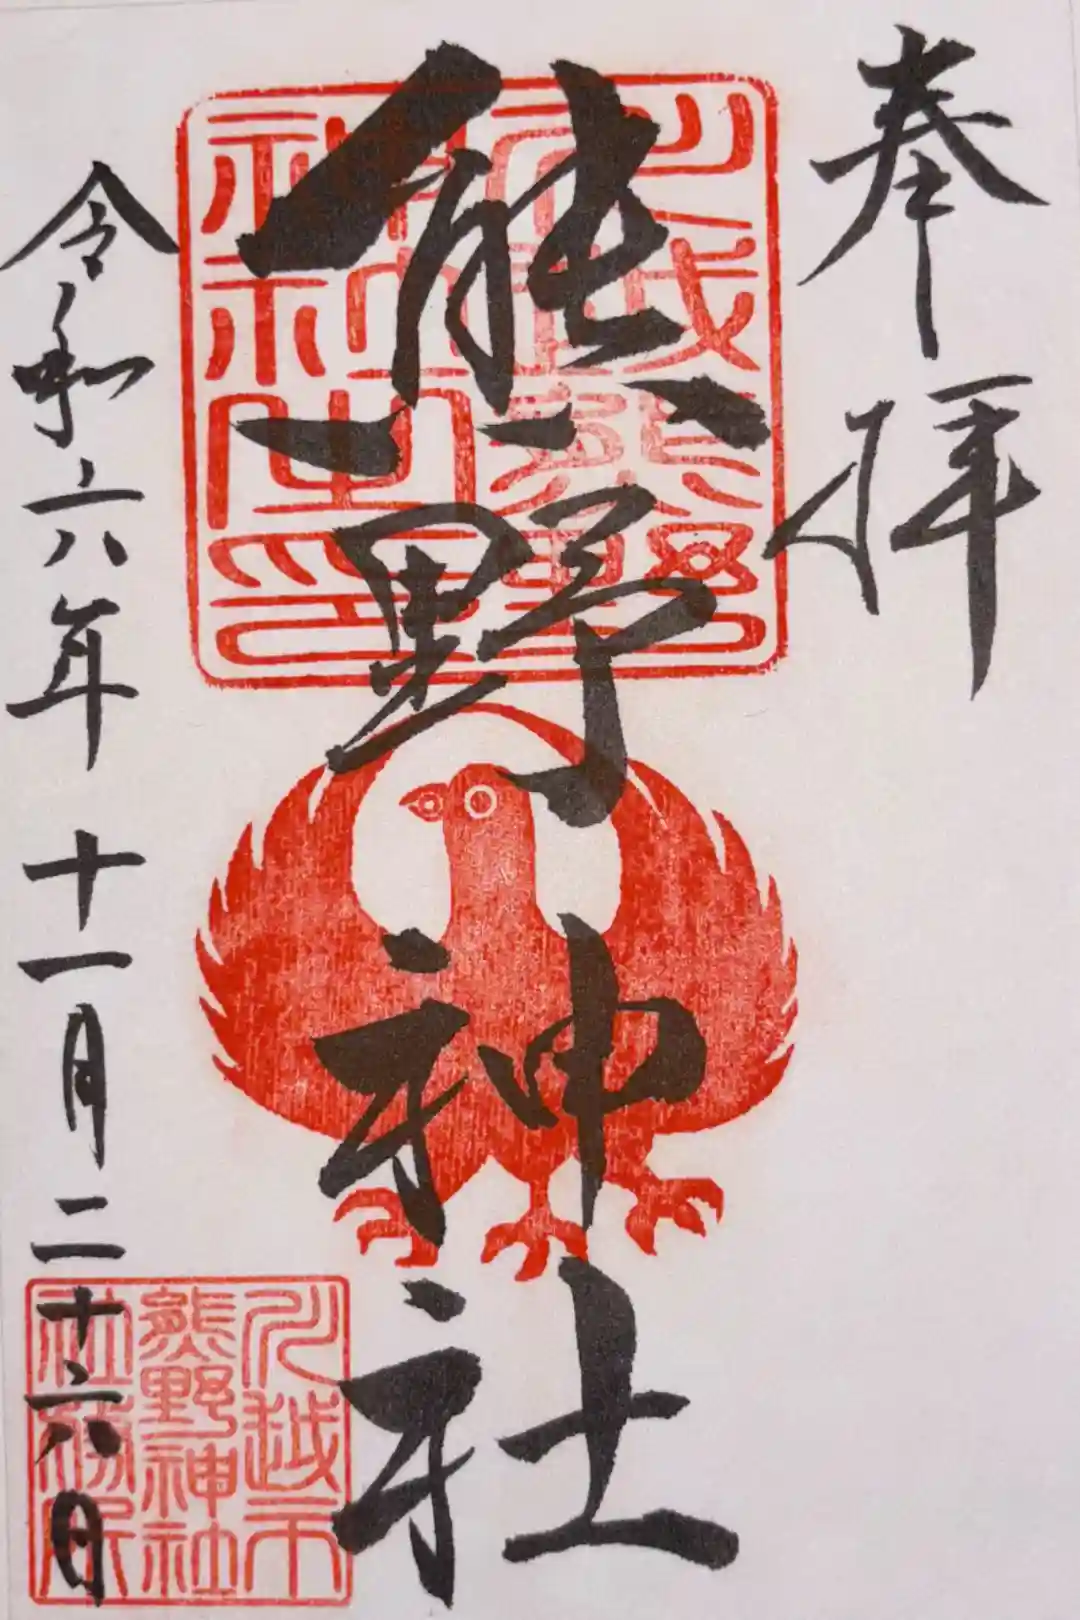 奉拝
熊野神社
令和六年十一月二十六日
川越市
熊野神社
社務所